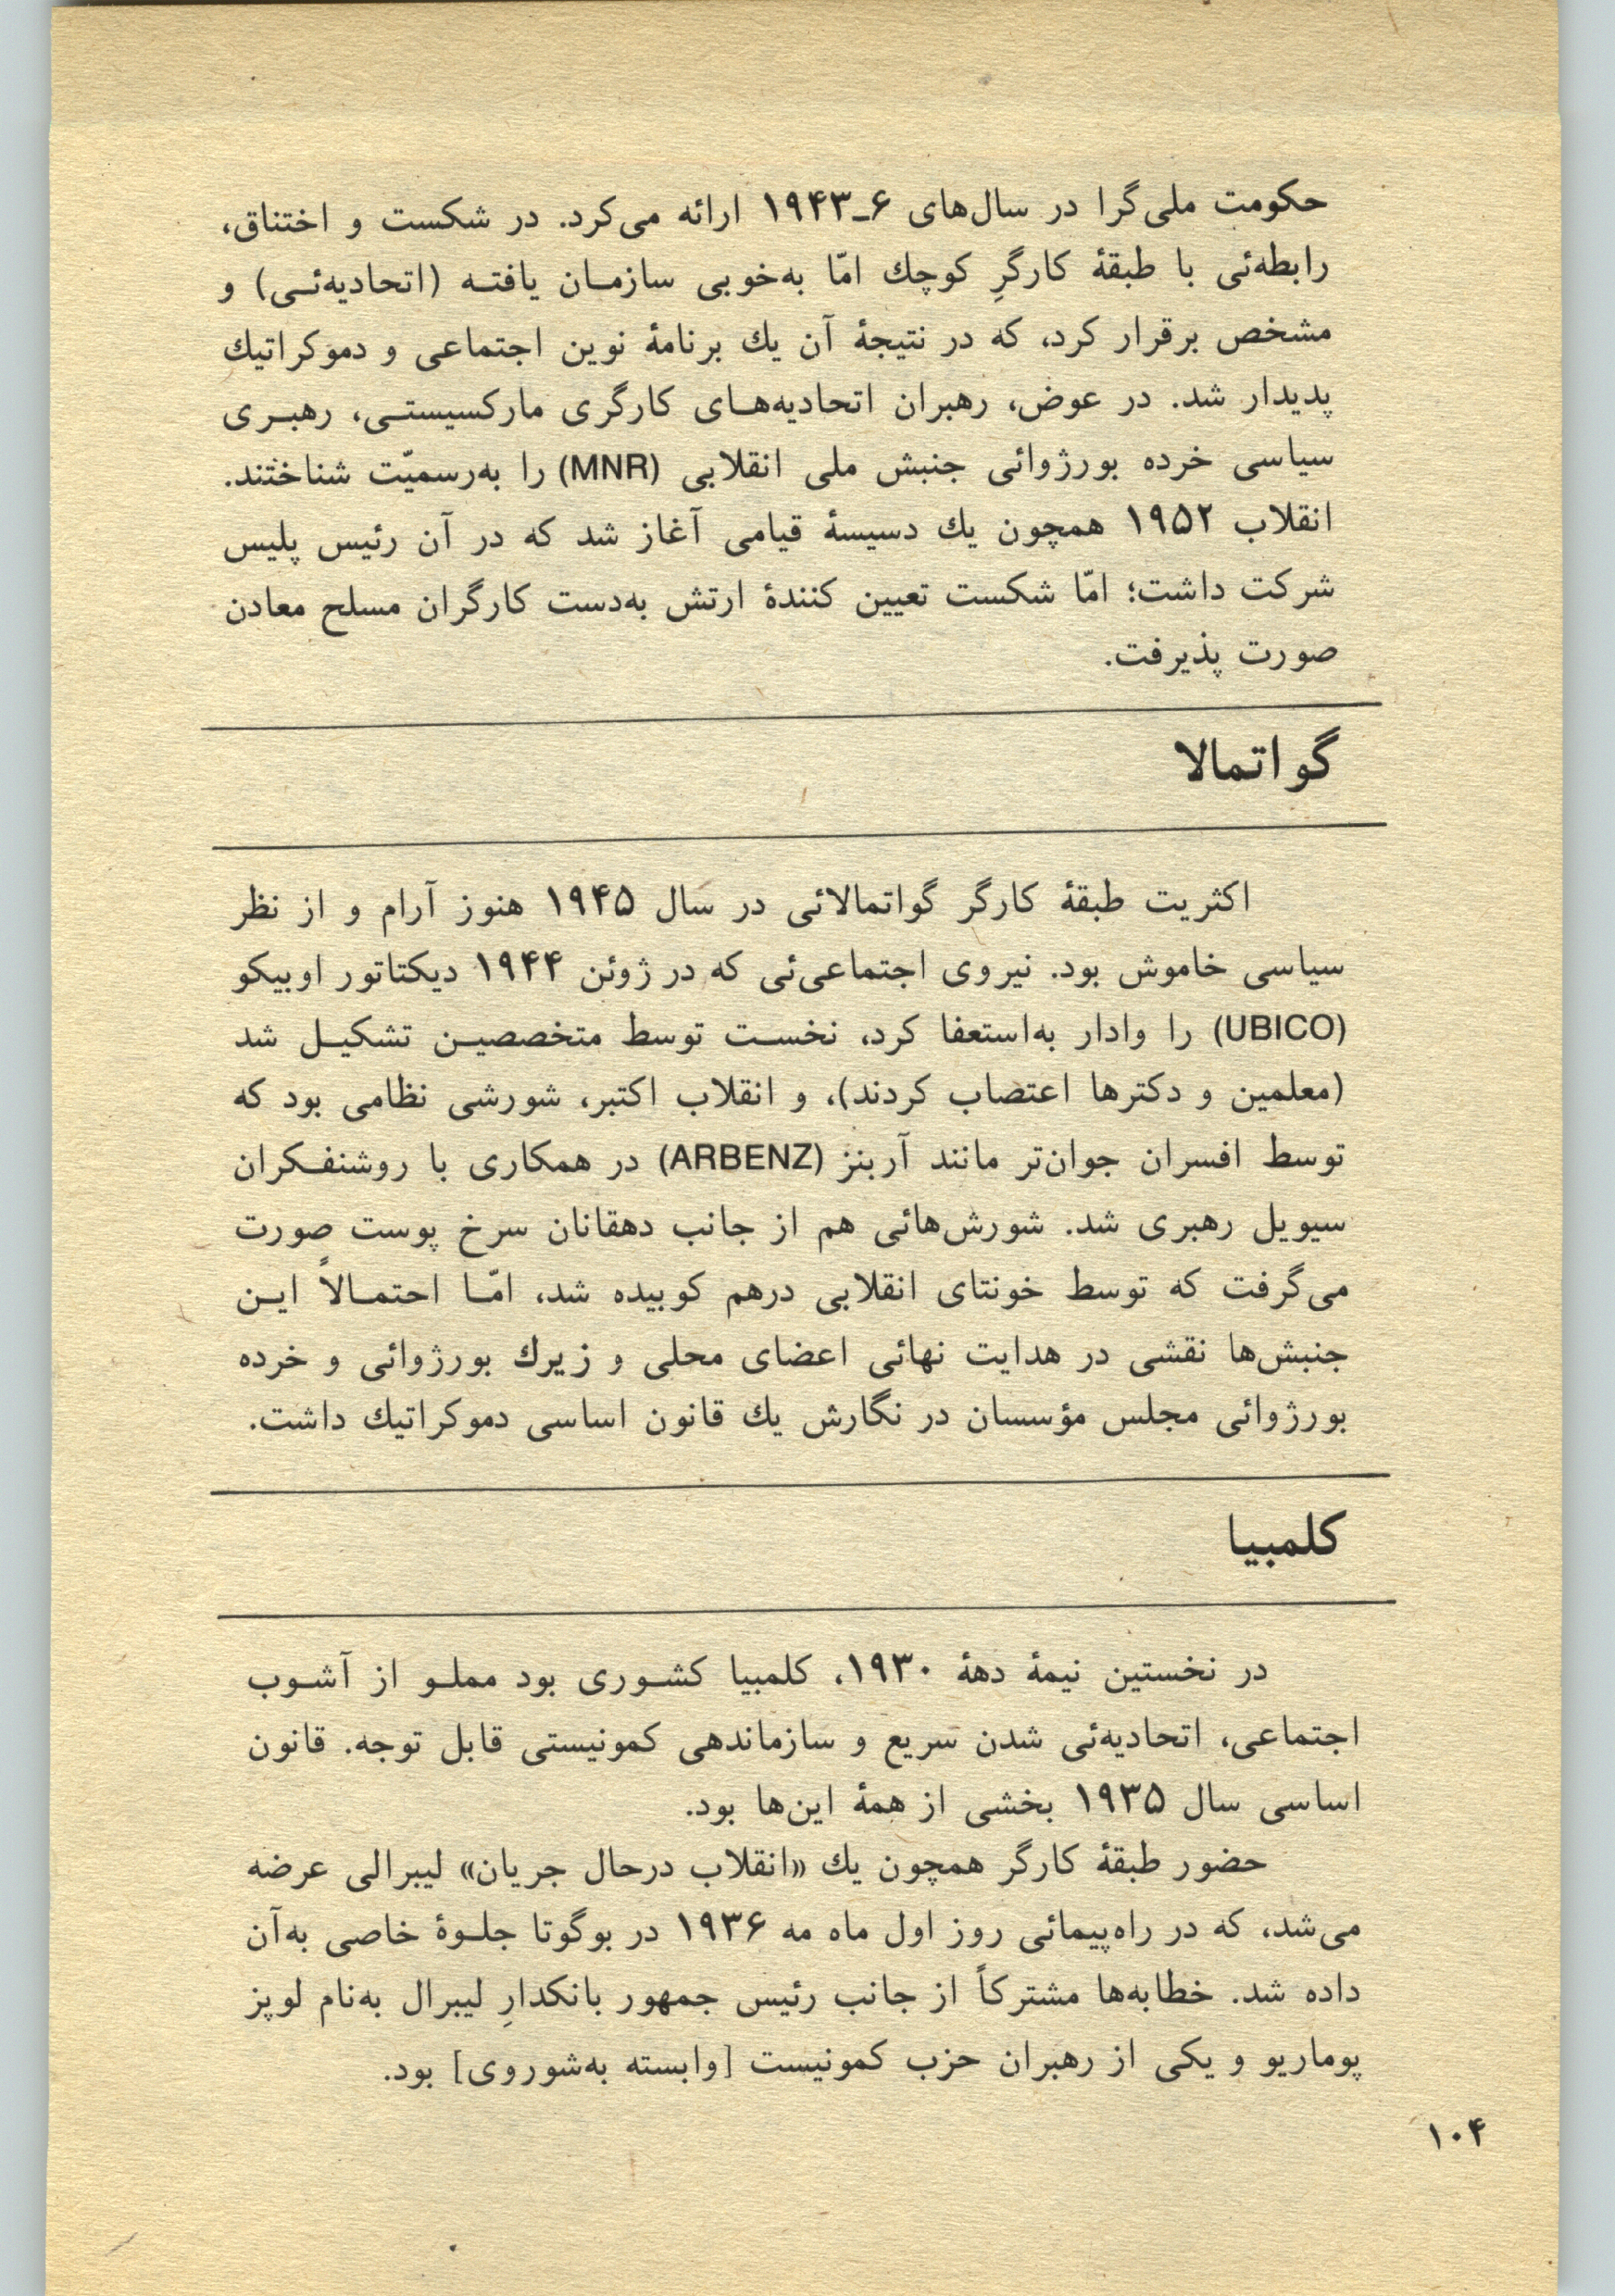 حکومت ملی‌گرا در سال‌های ۶ـ۱۹۴۳ ارائه می‌کرد. در شکست و اختناق،
رابطه‌ئی با طبقهٔ کارگرِ کوچك امّا به‌خوبی سازمـان یافتـه (اتحادیه‌ئـی) و
مشخص برقرار کرد، که در نتیجهٔ آن یك برنامهٔ نوین اجتماعی و دموکراتیك
پدیدار شد. در عوض، رهبران اتحادیه‌هـای کارگری مارکسیستـی، رهبـری
سیاسی خرده بورژوائی جنبش ملی انقلابی (MNR) را به‌رسمیّت شناختند.
انقلاب ۱۹۵۲ همچون یك دسیسهٔ قیامی آغاز شد که در آن رئیس پلیس
شرکت داشت؛ امّا شکست تعیین کنندهٔ ارتش به‌دست کارگران مسلح معادن
صورت پذیرفت.
گواتمالا
اکثریت طبقهٔ کارگر گواتمالائی در سال ۱۹۴۵ هنوز آرام و از نظر
سیاسی خاموش بود. نیروی اجتماعی‌ئی که در ژوئن ۱۹۴۴ دیکتاتور اوبیکو
(UBICO) را وادار به‌استعفا کرد، نخسـت توسط متخصصیـن تشکیـل شد
(معلمین و دکترها اعتصاب کردند)، و انقلاب اکتبر، شورشی نظامی بود که
توسط افسران جوان‌تر مانند آربنز (ARBENZ) در همکاری با روشنفـکران
سیویل رهبری شد. شورش‌هائی هم از جانب دهقانان سرخ پوست صورت
می‌گرفت که توسط خونتای انقلابی درهم کوبیده شد، امّـا احتمـالاً ایـن
جنبش‌ها نقشی در هدایت نهائی اعضای محلی و زیرك بورژوائی و خرده
بورژوائی مجلس مؤسسان در نگارش یك قانون اساسی دموکراتیك داشت.
کلمبیا
در نخستین نیمهٔ دههٔ ۱۹۳۰، کلمبیا کشـوری بود مملـو از آشـوب
اجتماعی، اتحادیه‌ئی شدن سریع و سازماندهی کمونیستی قابل توجه. قانون
اساسی سال ۱۹۳۵ بخشی از همهٔ این‌ها بود.
حضور طبقهٔ کارگر همچون یك «انقلاب درحال جریان» لیبرالی عرضه
می‌شد، که در راه‌پیمائی روز اول ماه مه ۱۹۳۶ در بوگوتا جلـوهٔ خاصی به‌آن
داده شد. خطابه‌ها مشترکاً از جانب رئیس جمهور بانکدارِ لیبرال به‌نام لوپز
پوماریو و یکی از رهبران حزب کمونیست [وابسته به‌شوروی] بود.
۱۰۴